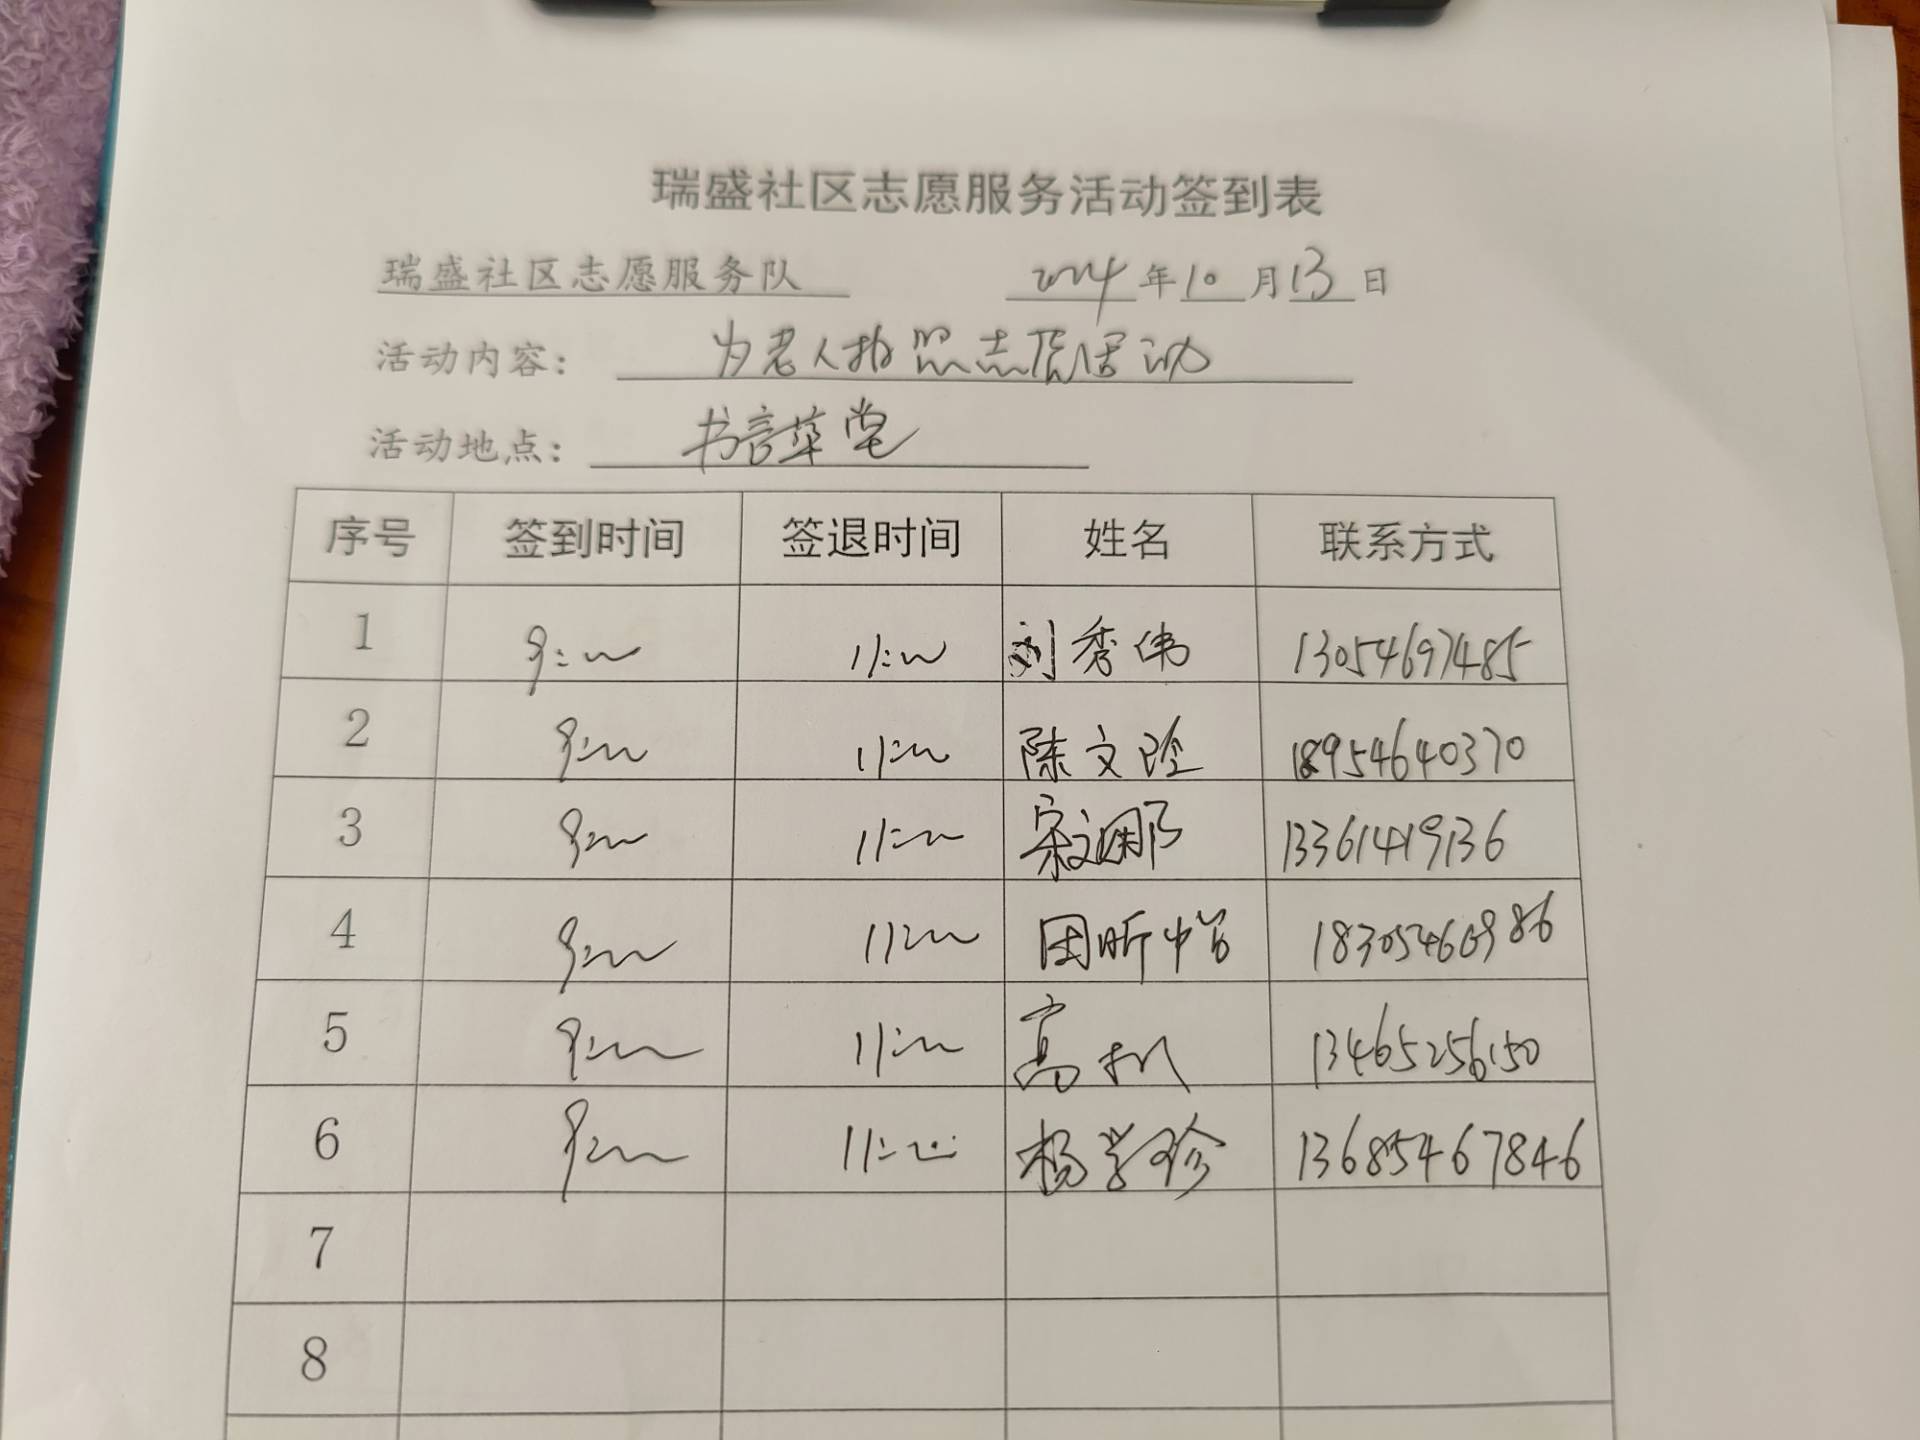 瑞盛社区志愿服务活动签到表
瑞盛社区志愿服务队 2024年10月13日
活动内容： 为老人拍照志愿活动
活动地点： 书言草堂
序号 签到时间 签退时间 姓名 联系方式
1 9:00 11:00 刘秀伟 13054697485
2 9:00 11:00 陈文 18954640370
3 9:00 11:00 宋文娜 13361419136
4 9:00 11:00 18305460986
5 9:00 11:00 高 13465256150
6 9:00 11:00 杨学珍 13685467846
7
8